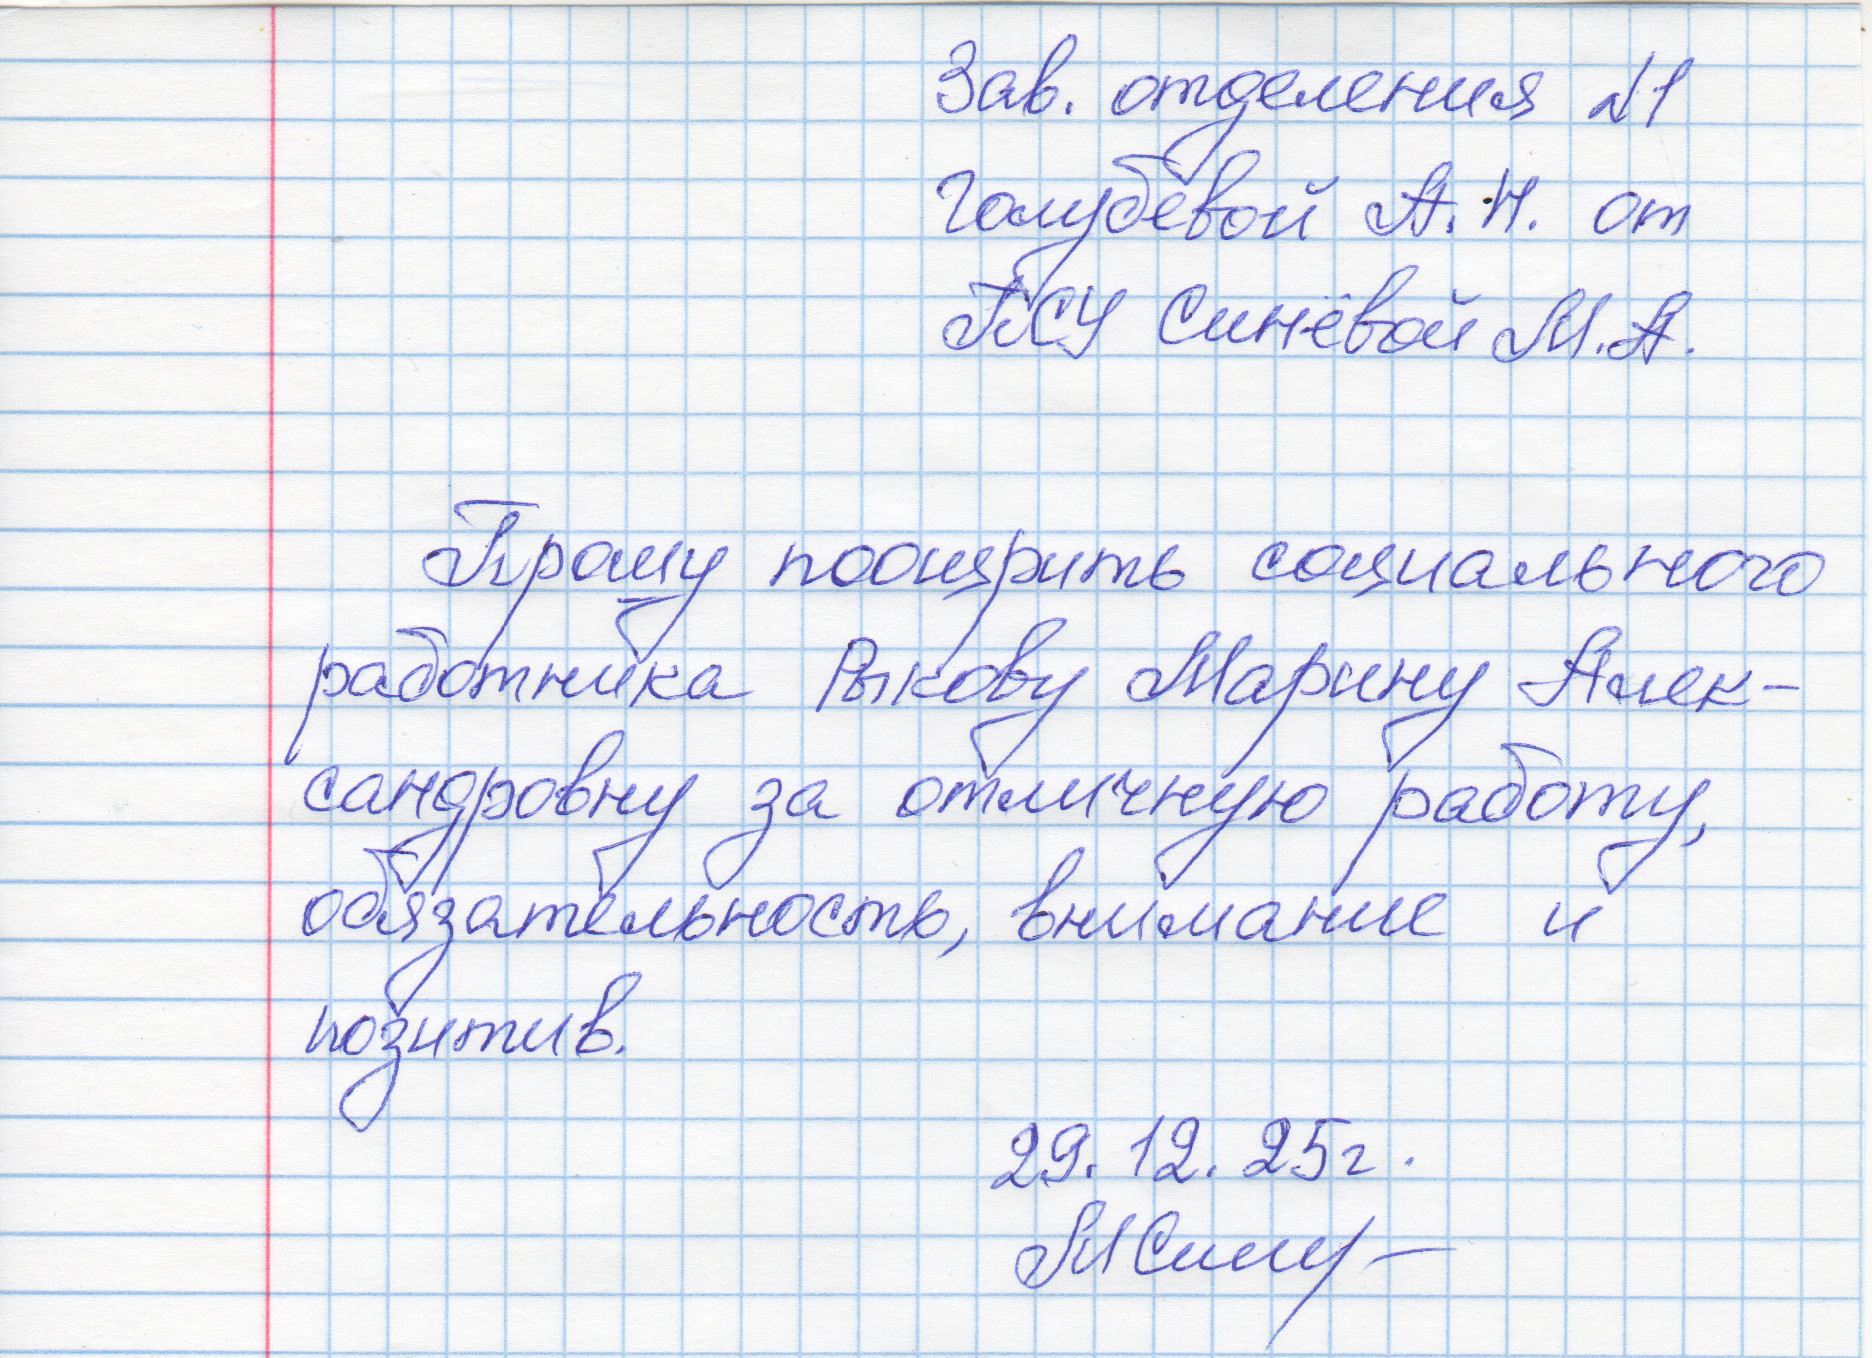 Зав. отделения №1
Голубевой А.Н. от
ПСУ Синёвой М.А.
Прошу поощрить социального
работника Рыкову Марину Алек-
сандровну за отличную работу,
обязательность, внимание и
позитив.
29.12.25г.